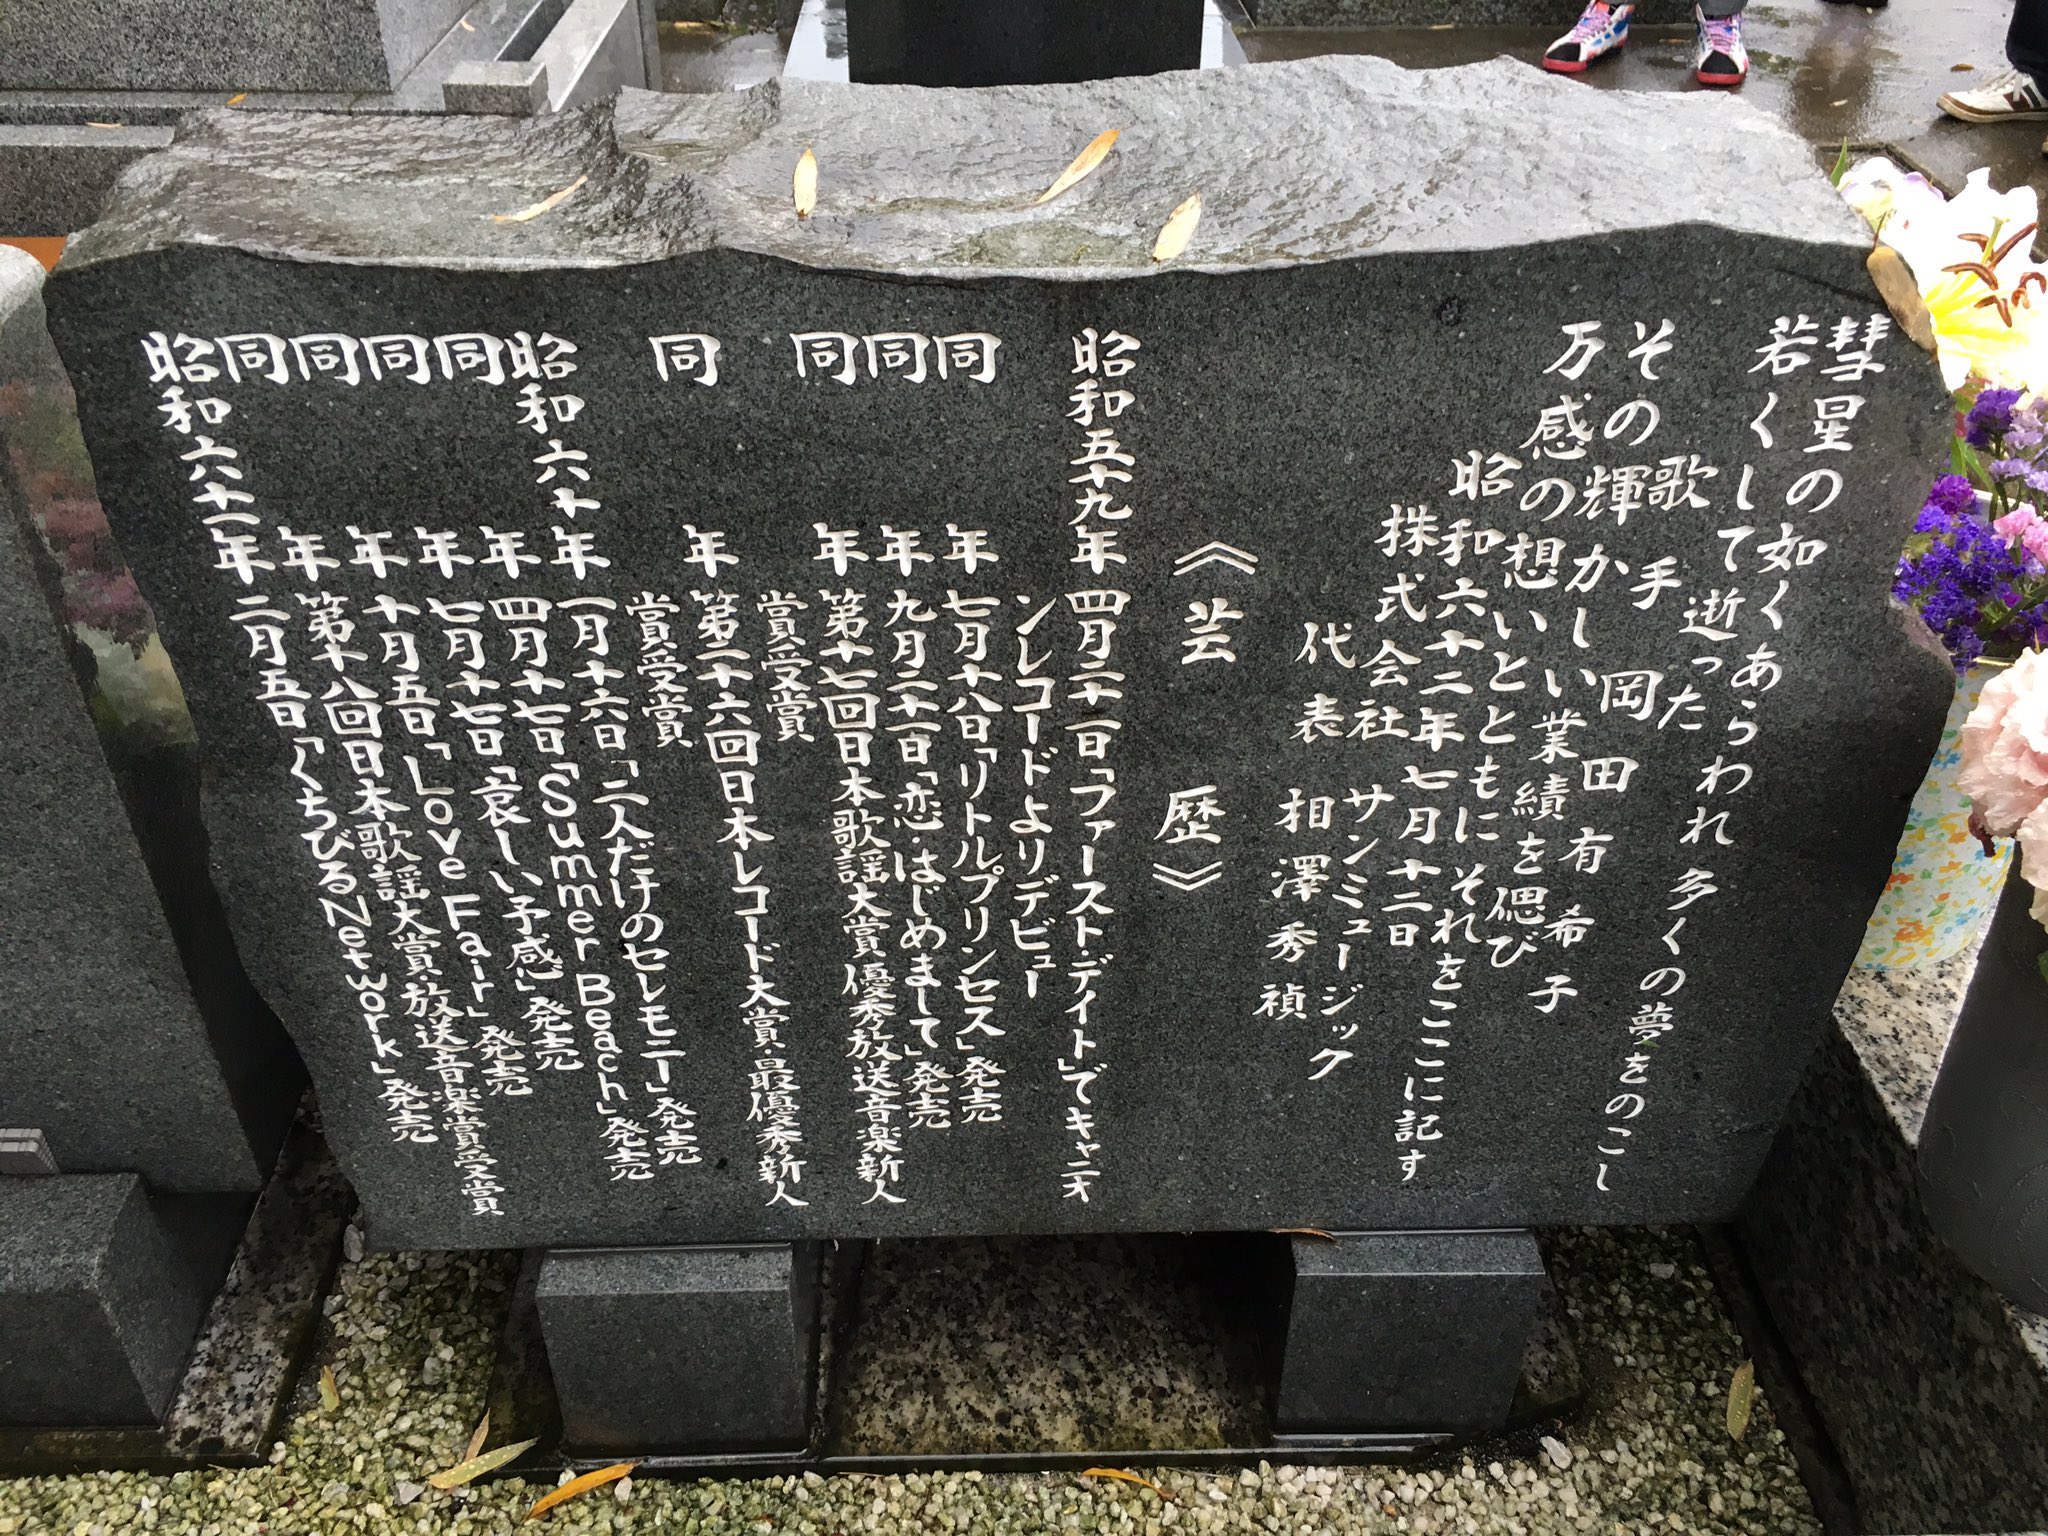 彗星の如くあらわれ 多くの夢をのこし
若くして逝った
歌手 岡田有希子
その輝かしい業績を偲び
万感の想いとともに それをここに記す
昭和六十二年七月十二日
株式会社 サンミュージック
代表 相澤秀禎
《芸歴》
昭和五十九年 四月二十一日「ファースト・デイト」でキャニオ
ンレコードよりデビュー
同 年 七月十八日「リトルプリンセス」発売
同 年 九月二十一日「恋・はじめまして」発売
同 年 第十七回日本歌謡大賞優秀放送音楽新人
賞受賞
同 年 第二十六回日本レコード大賞・最優秀新人
賞受賞
昭和六十年 一月十六日「二人だけのセレモニー」発売
同 年 四月十七日「Summer Beach」発売
同 年 七月十七日「哀しい予感」発売
同 年 十月五日「Love Fair」発売
同 年 第十八回日本歌謡大賞・放送音楽賞受賞
昭和六十一年 二月五日「くちびるNetwork」発売